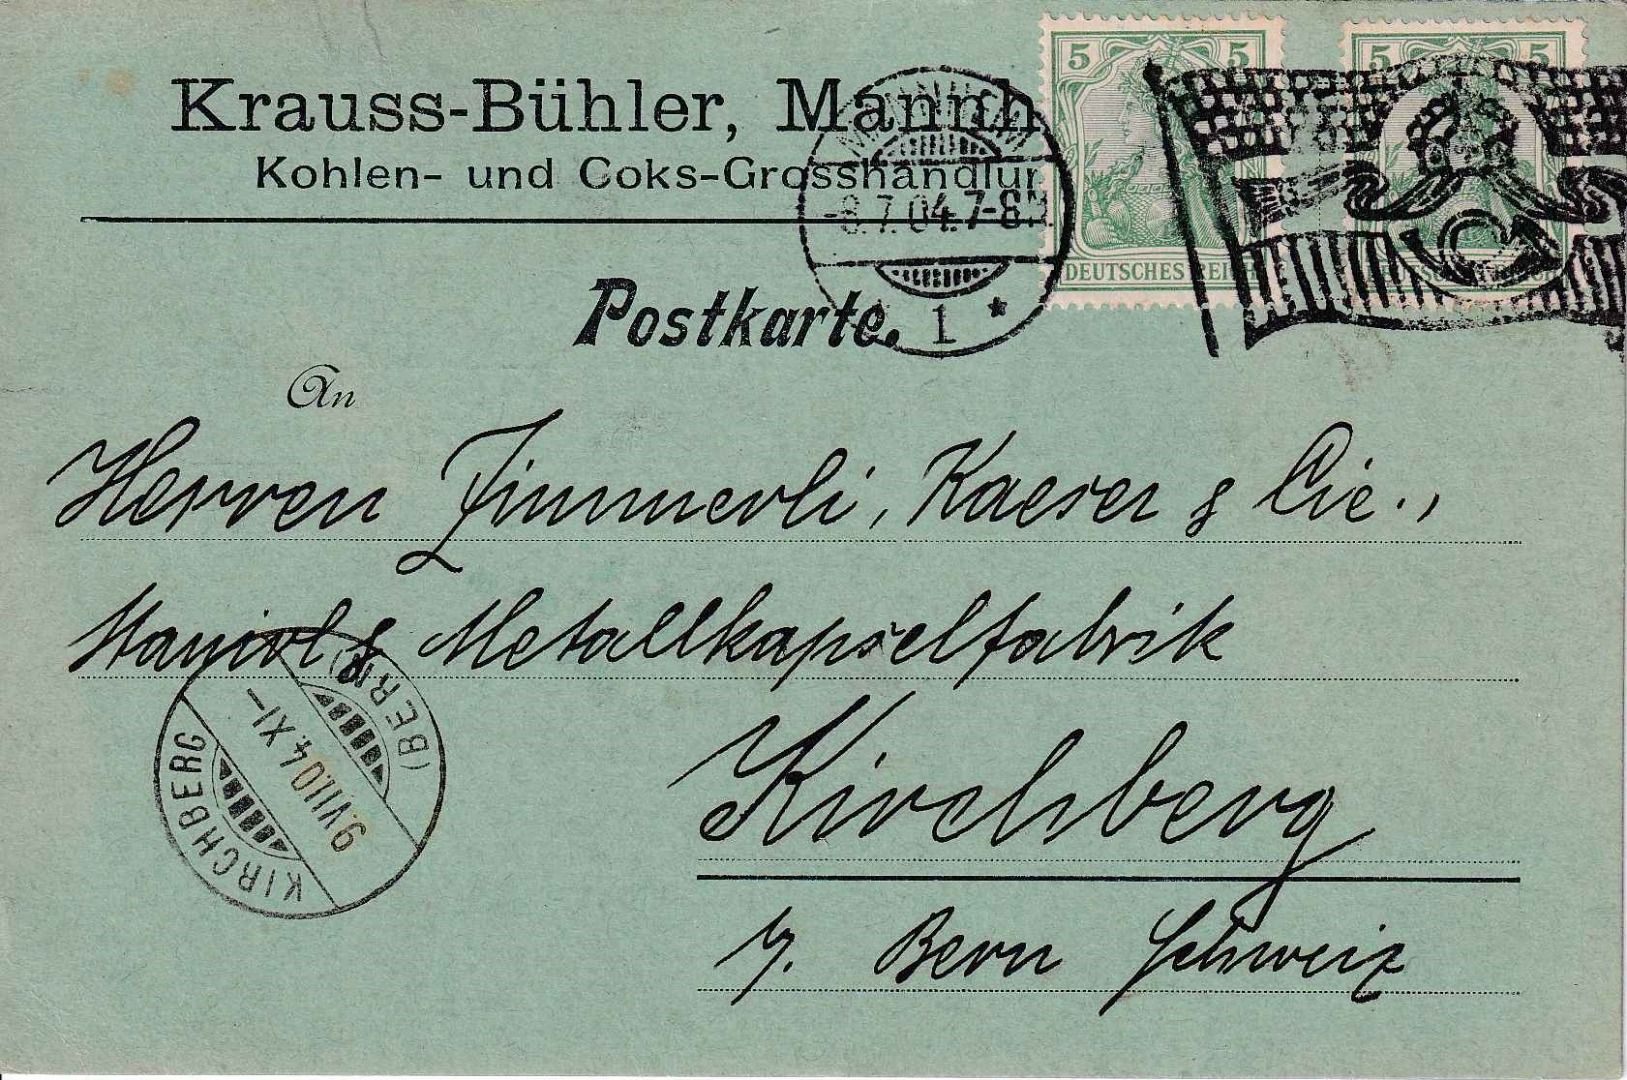 Krauss-Bühler, Mannh
Kohlen- und Coks-Grosshandlun
5 5
DEUTSCHES REICH
5 5
MANNHEIM
-8.7.04.7-8N.
1 *
Postkarte.
An
Herren Zimmerli, Kaeser & Cie.,
Staniol & Metallkapselfabrik
Kirchberg
b/. Bern Schweiz
KIRCHBERG
(BERN)
9.VII.04.XI-